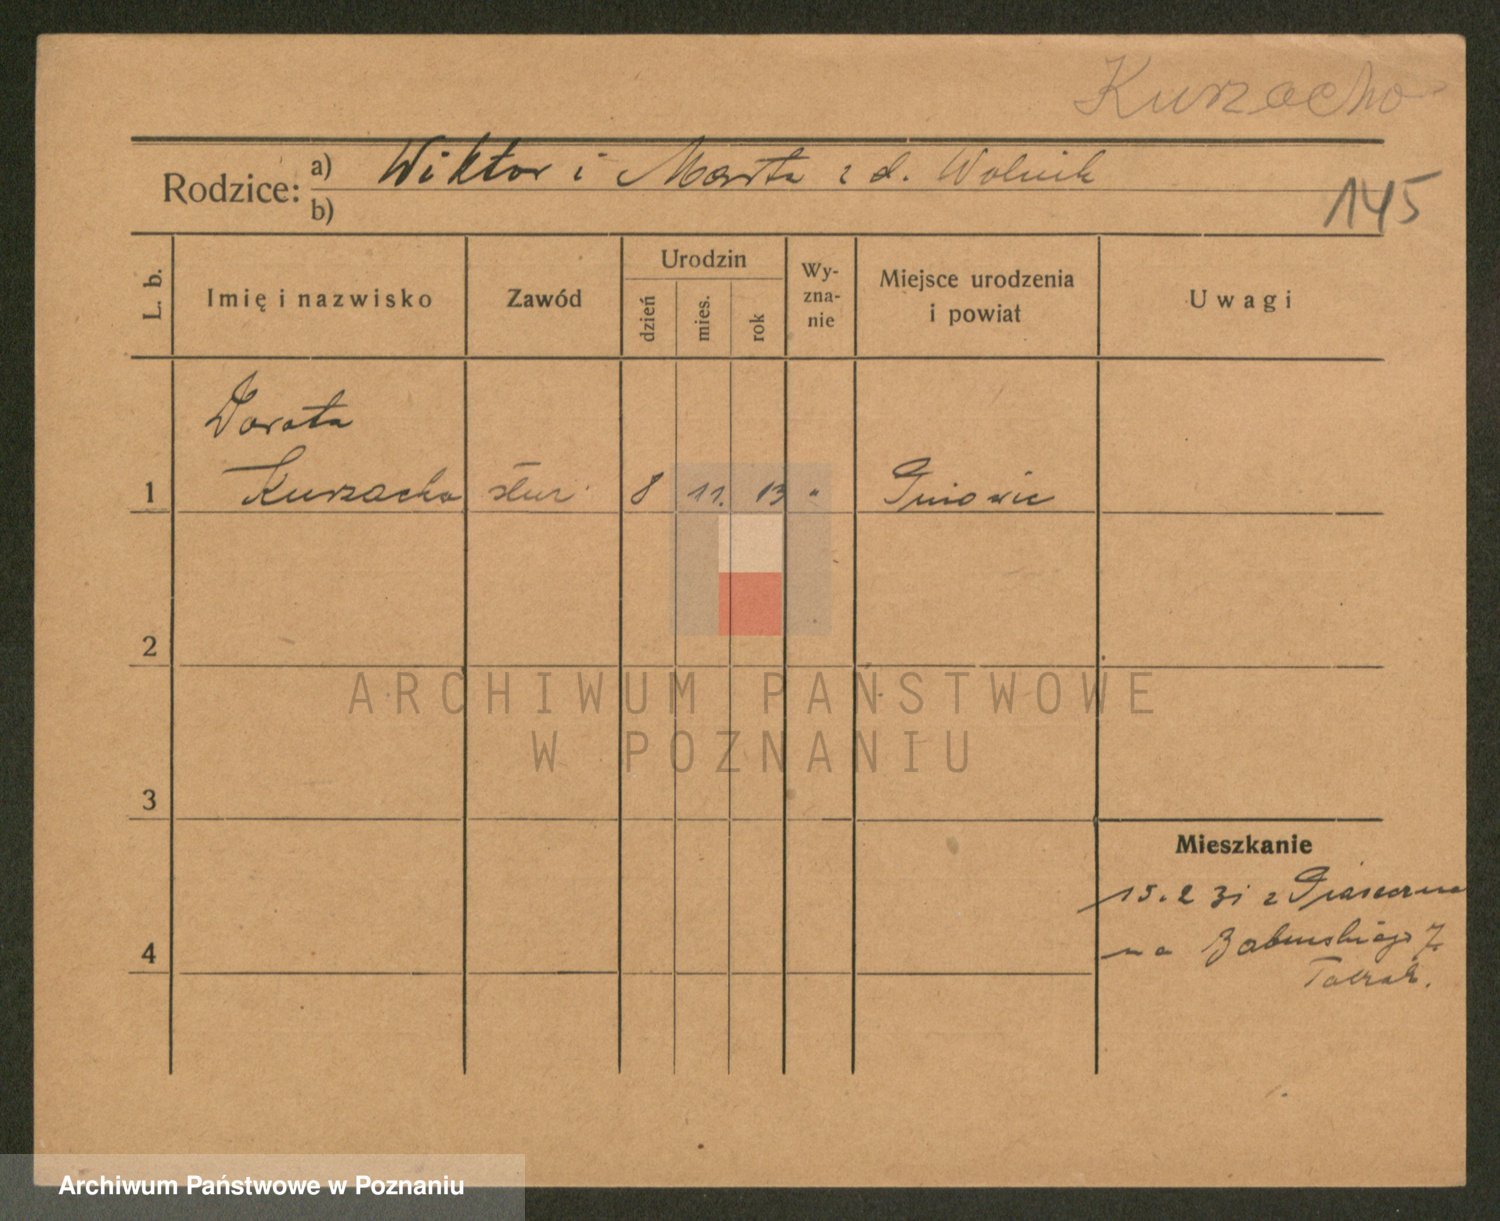 Kurzacho
Rodzice: a) Wiktor i Marta z d. Wolnik
b)
145
L. b.
Imię i nazwisko
Zawód
Urodzin
dzień
mies.
rok
Wy-
zna-
nie
Miejsce urodzenia
i powiat
Uwagi
Dorota
1 Kurzacha służ. 8 11. 13 "
2
3
4
Mieszkanie
15.2 31 z
na 7
ARCHIWUM PAŃSTWOWE
W POZNANIU
Archiwum Państwowe w Poznaniu